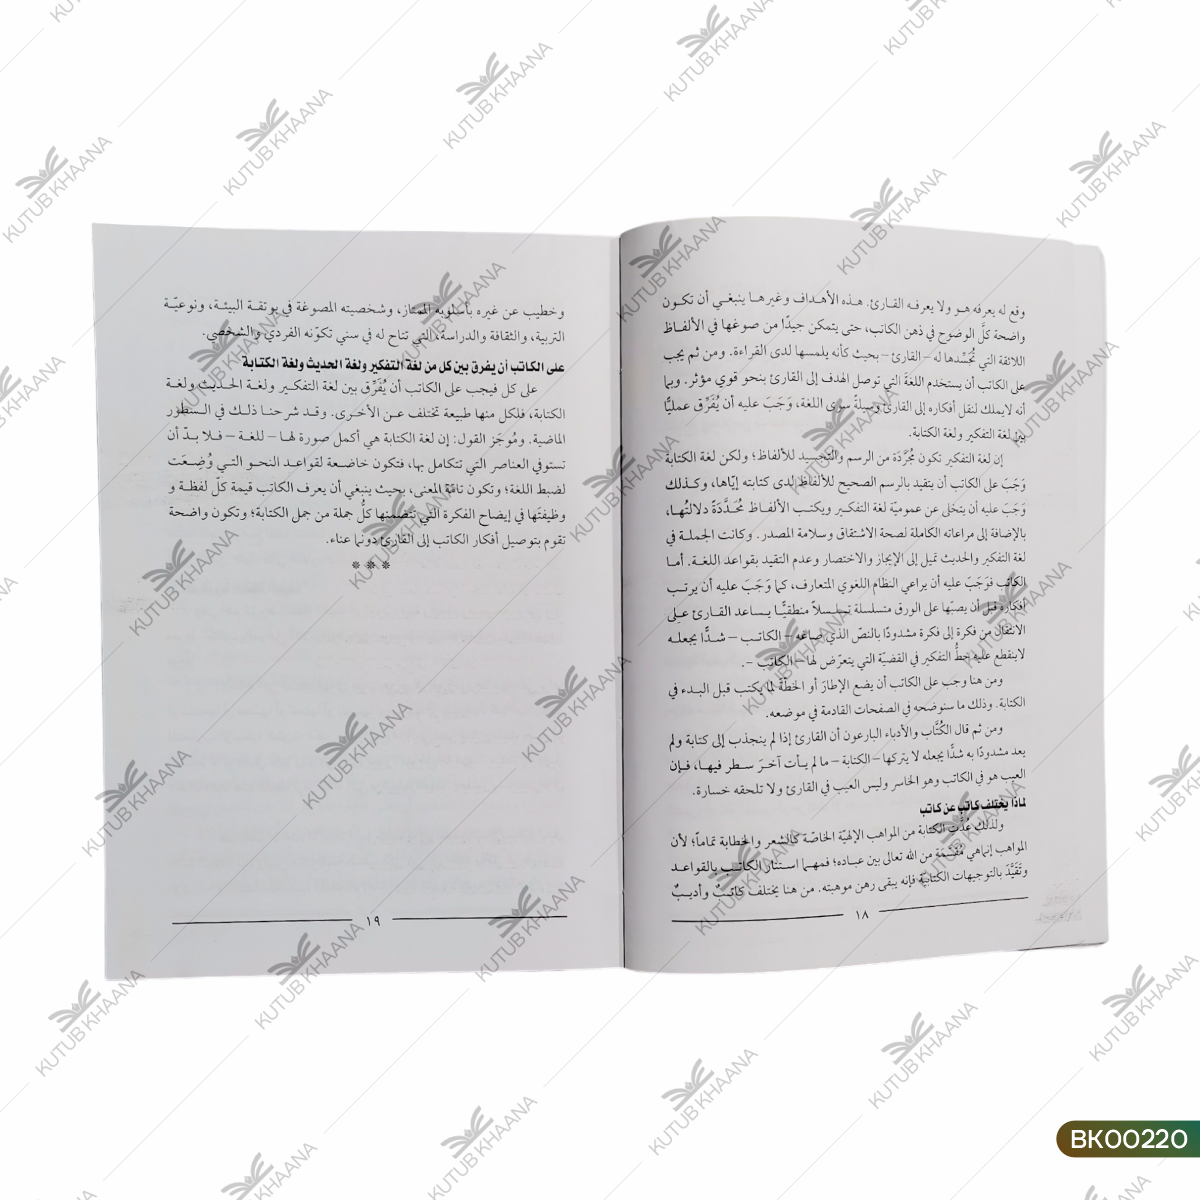 وقع له يعرفه هو ولا يعرفه القارئ. هذه الأهداف وغيرها ينبغي أن تكون
واضحة كلَّ الوضوح في ذهن الكاتب، حتى يتمكن جيدًا من صوغها في الألفاظ
اللائقة التي تُجَسِّدها له – القارئ – بحيث كأنه يلمسها لدى القراءة. ومن ثم يجب
على الكاتب أن يستخدم اللغةَ التي توصل الهدف إلى القارئ بنحو قوي مؤثر. وبما
أنه لايملك لنقل أفكاره إلى القارئ وسيلةً سوى اللغة، وَجَبَ عليه أن يُفَرِّق عمليًّا
بين لغة التفكير ولغة الكتابة.
إن لغة التفكير تكون مُجَرَّدَة من الرسم والتجسيد للألفاظ؛ ولكن لغة الكتابة
وَجَبَ على الكاتب أن يتقيد بالرسم الصحيح للألفاظ لدى كتابته إيّاها، وكذلك
وَجَبَ عليه أن يتخلى عن عمومية لغة التفكير ويكتب الألفاظ مُحَدَّدَةً دلالتُها،
بالإضافة إلى مراعاته الكاملة لصحة الاشتقاق وسلامة المصدر. وكانت الجملة في
لغة التفكير والحديث تميل إلى الإيجاز والاختصار وعدم التقيد بقواعد اللغة. أما
الكاتب فوَجَبَ عليه أن يراعي النظام اللغوي المتعارف، كما وَجَبَ عليه أن يرتب
أفكاره قبل أن يصبّها على الورق متسلسلة تسلسلاً منطقيًّا يساعد القارئ على
الانتقال من فكرة إلى فكرة مشدودًا بالنصّ الذي صاغه – الكاتب – شدًّا يجعله
لاينقطع عليه خطُّ التفكير في القضيّة التي يتعرّض لها – الكاتب –.
ومن هنا وجب على الكاتب أن يضع الإطارَ أو الخطّةَ لما يكتب قبل البدء في
الكتابة. وذلك ما سنوضحه في الصفحات القادمة في موضعه.
ومن ثم قال الكُتَّاب والأدباء البارعون أن القارئ إذا لم ينجذب إلى كتابة ولم
يعد مشدودًا به شدًّا يجعله لا يتركها – الكتابة – ما لم يأت آخرَ سطر فيها، فإن
العيب هو في الكاتب وهو الخاسر وليس العيب في القارئ ولا تلحقه خسارة.
لماذا يختلف كاتب عن كاتب
ولذلك عُدَّت الكتابة من المواهب الإلهيّة الخاصّة كالشعر والخطابة تماماً؛ لأن
المواهب إنماهي مُقَسَّمَة من الله تعالى بين عباده؛ فمهما استنار الكاتب بالقواعد
وتَقَيَّدَ بالتوجيهات الكتابيّة فإنه يبقى رهن موهبته. من هنا يختلف كاتبٌ وأديبٌ
١٨
وخطيب عن غيره بأسلوبه الممتاز، وشخصيته المصوغة في بوتقة البيئة، ونوعيّة
التربية، والثقافة والدراسة، التي تتاح له في سني تكوّنه الفردي والشخصي.
على الكاتب أن يفرق بين كل من لغة التفكير ولغة الحديث ولغة الكتابة
على كل فيجب على الكاتب أن يُفَرِّق بين لغة التفكير ولغة الحديث ولغة
الكتابة، فلكل منها طبيعة تختلف عن الأخرى. وقد شرحنا ذلك في السطور
الماضية. ومُوجَز القول: إن لغة الكتابة هي أكمل صورة لها – للغة – فلا بدّ أن
تستوفي العناصر التي تتكامل بها، فتكون خاضعة لقواعد النحو التي وُضِعَت
لضبط اللغة؛ وتكون تامّة المعنى، بحيث ينبغي أن يعرف الكاتب قيمة كلّ لفظة و
وظيفتَها في إيضاح الفكرة التي تتضمنها كلُّ جملة من جمل الكتابة؛ وتكون واضحة
تقوم بتوصيل أفكار الكاتب إلى القارئ دونما عناء.
* * *
١٩
KUTUB KHAANA
BK00220